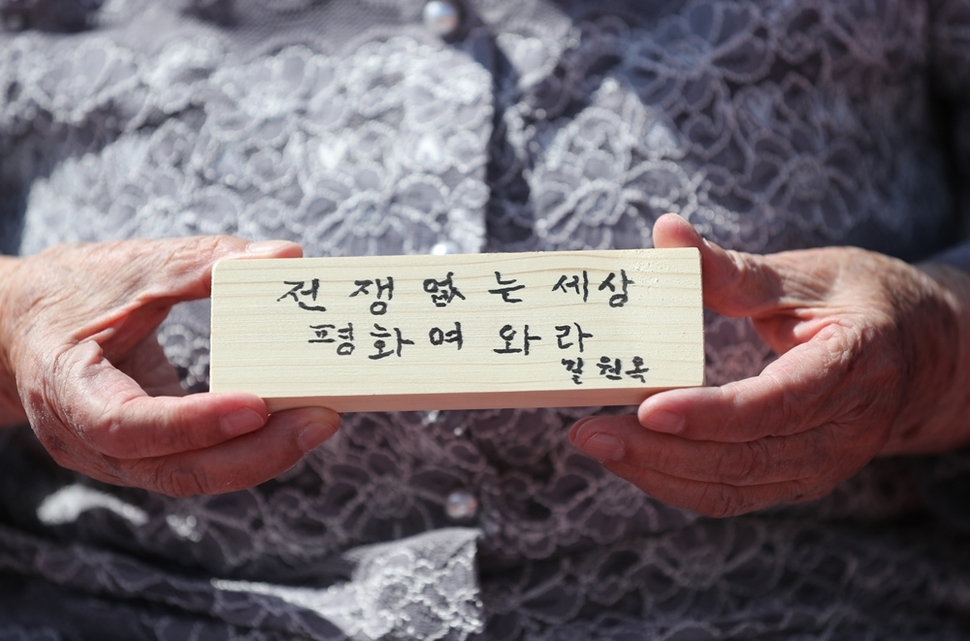 전쟁없는 세상
평화여 와라
길원옥